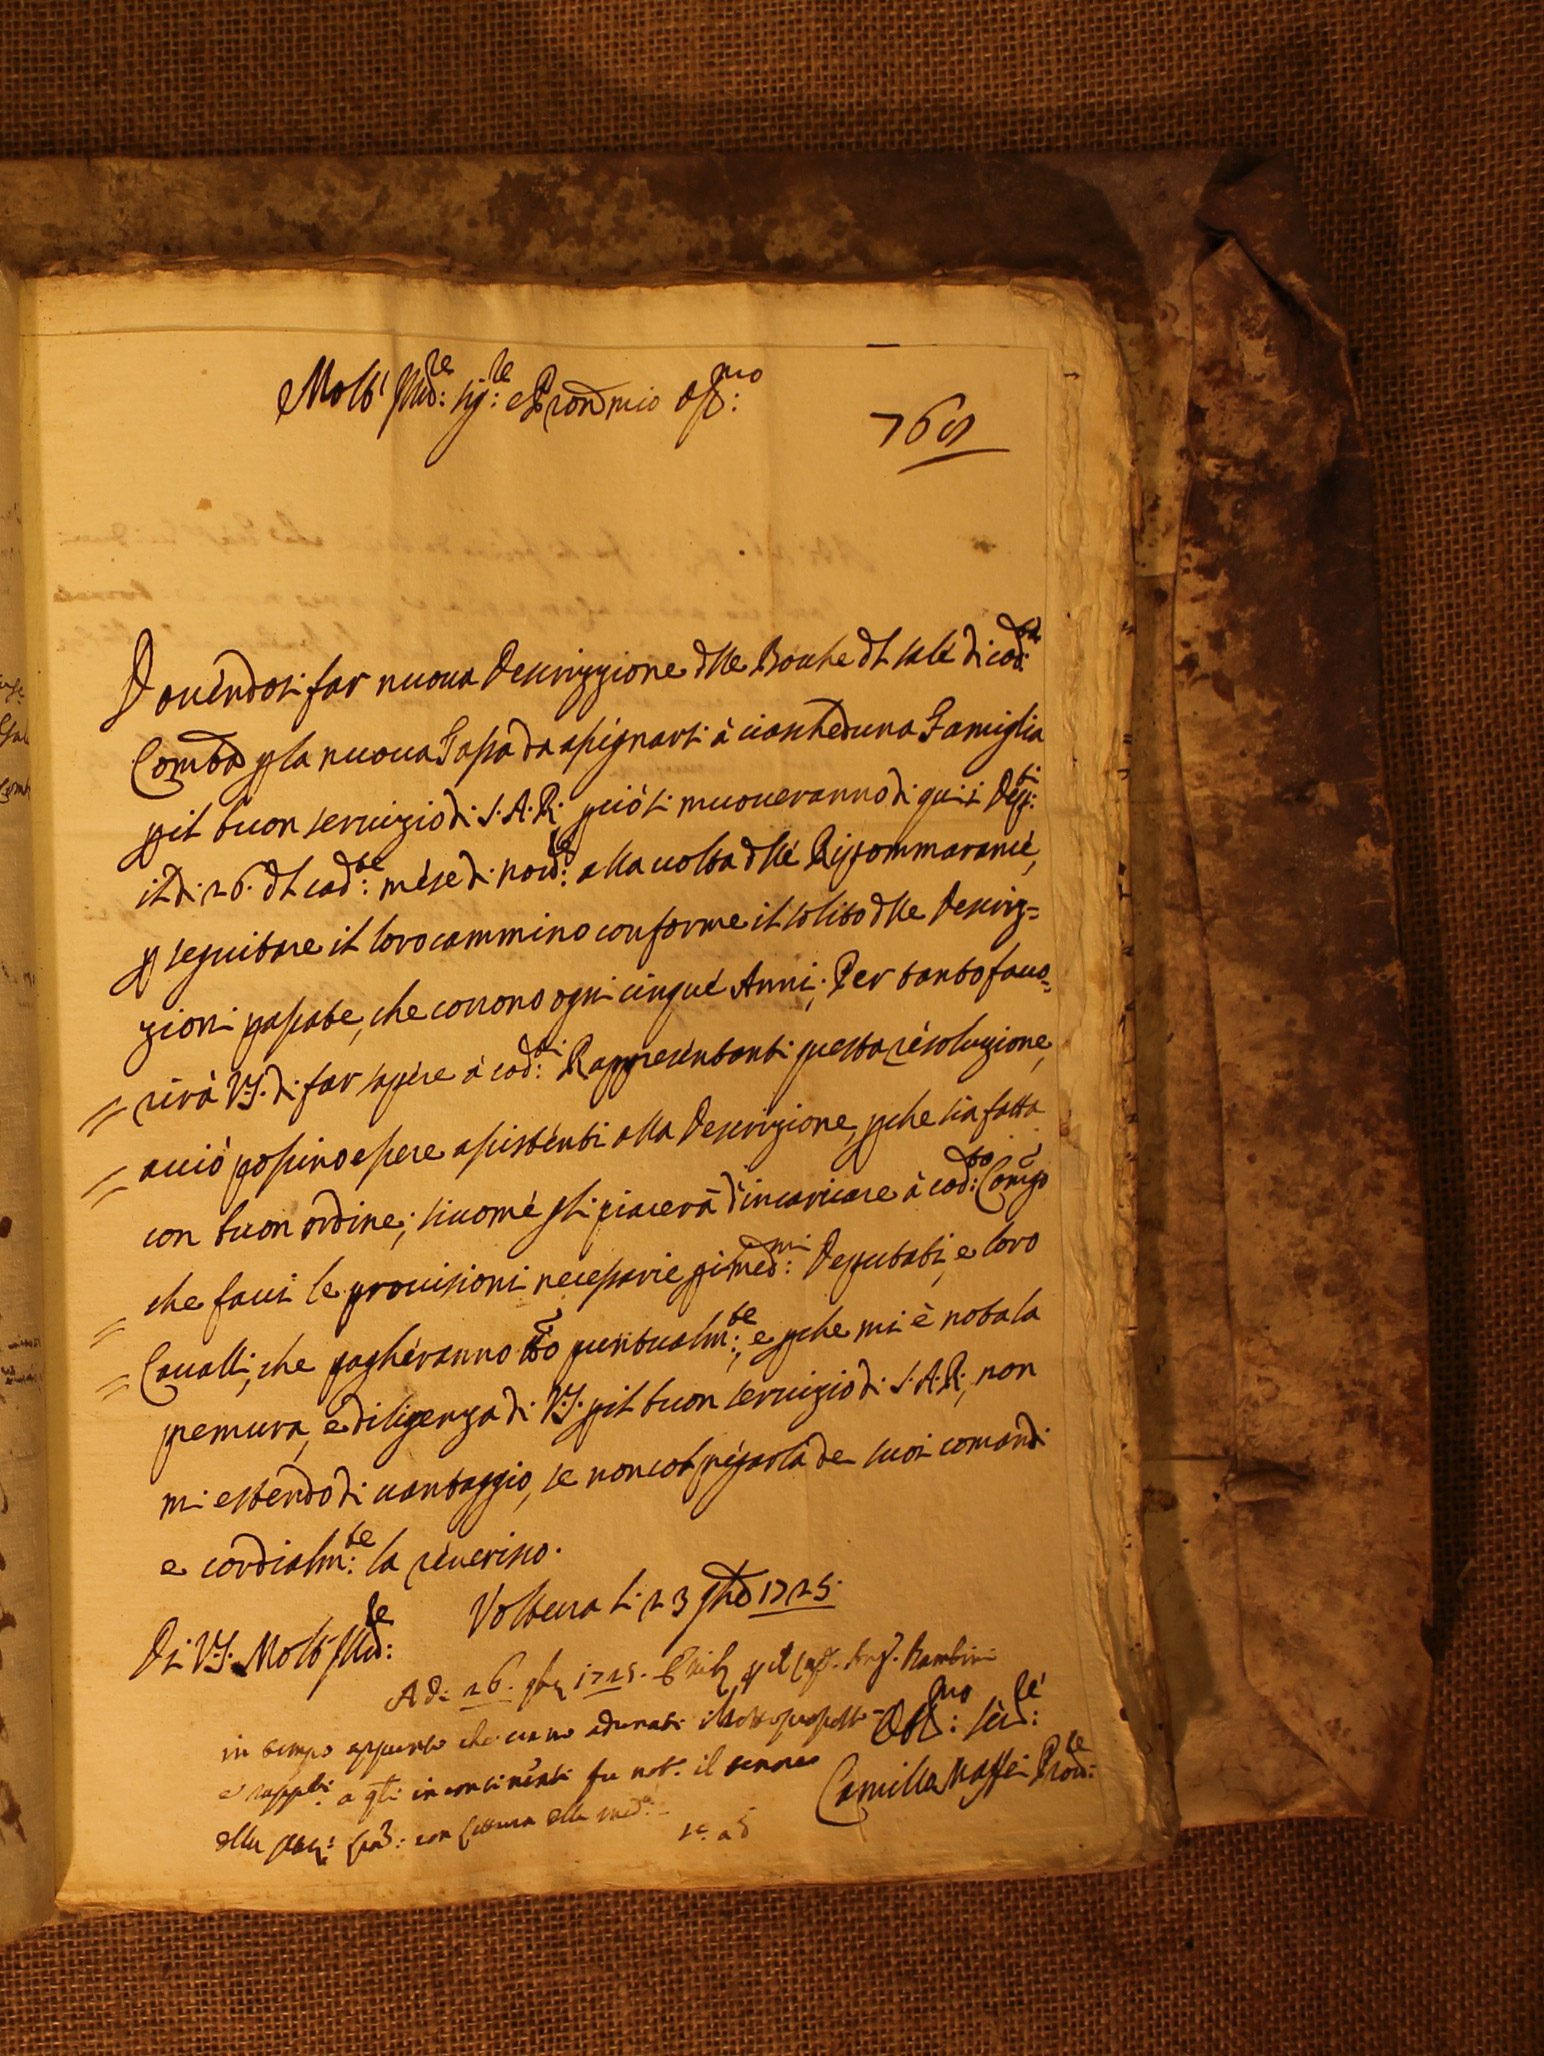 Molt' Ill:re Sig:re e Pron mio Oss:mo
769
Douendosi far nuoua Descrizzione dlle Bocche dl sale di cod:ta
Com:tà p la nuoua Tassa da assignarsi à ciascheduna Famiglia
p il buon seruizio di S.A.R. p ciò si muoueranno di qui i Dep:ti
il dì 26. dl cad:te mese di Nou:e alla uolta dlle Ripommarance,
p seguitare il loro cammino conforme il solito dlle Descriz=
zioni passate, che corrono ogni cinque Anni; Per tanto fauo=
rirà V.S. di far sapere à cod:ti Rappresentanti questa resoluzione,
acciò possino essere assistenti alla Descrizione, p che sia fatta
con buon ordine; siccome gli piacerà d'incaricare à cod:to Camgo
che facci le prouisioni necessarie p i med:mi Deputati, e loro
Caualli, che pagheranno tto puntualm:te, e p che mi è nota la
premura, e diligenza di V.S. p il buon seruizio di S.A.R., non
mi estendo di uantaggio, se non col pregarla de suoi comandi
e cordialm:te la reuerisco.
Di V.S. Molt' Ill:re
Volterra li 23 9bre 1725.
A dì 26. 9bre 1725. p il Bambini
in tempo appunto che erano adunati
e rappti a qti incontinenti fu not. il tenore
della con lettura della med:a
Oss:mo Ser:re
Camillo Maffei Prou:re